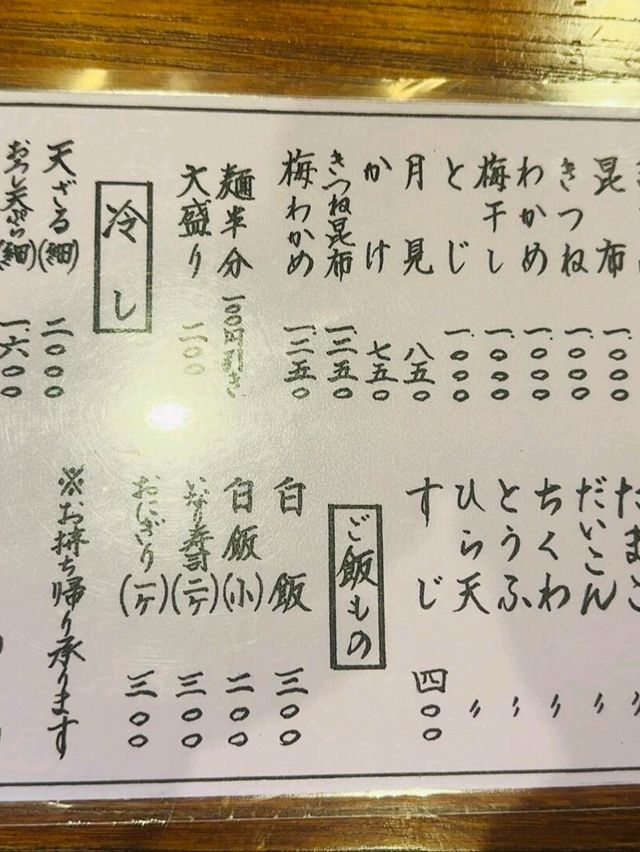 昆布 一、〇〇〇
きつね 一、〇〇〇
わかめ 一、〇〇〇
梅干し 一、〇〇〇
とじ 一、〇〇〇
月見 八五〇
かけ 七五〇
きつね昆布 一、三五〇
梅わかめ 一、三五〇
麺半分 一〇〇円引き
大盛り 二〇〇
冷し
天ざる(細) 二〇〇〇
おろし天ぷら(細) 一、六〇〇
だいこん 〃
ちくわ 〃
とうふ 〃
ひら天 〃
すじ 四〇〇
ご飯もの
白飯 三〇〇
白飯(小) 二〇〇
いなり寿司(二ケ) 三〇〇
おにぎり(一ケ) 三〇〇
※お持ち帰り承ります